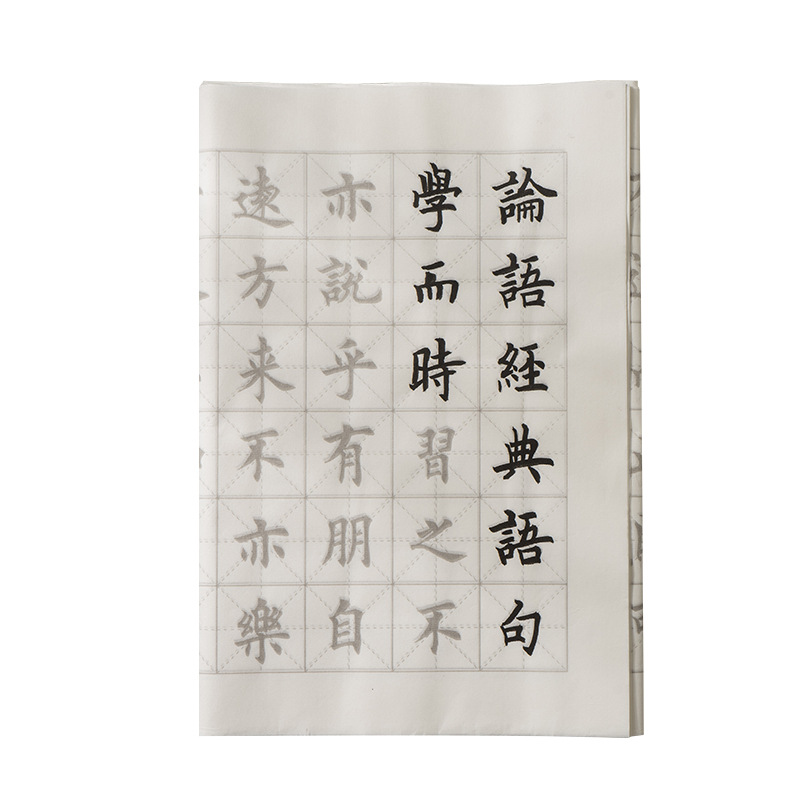 論語經典語句
學而時習之不
亦説乎有朋自
遠方来不亦樂